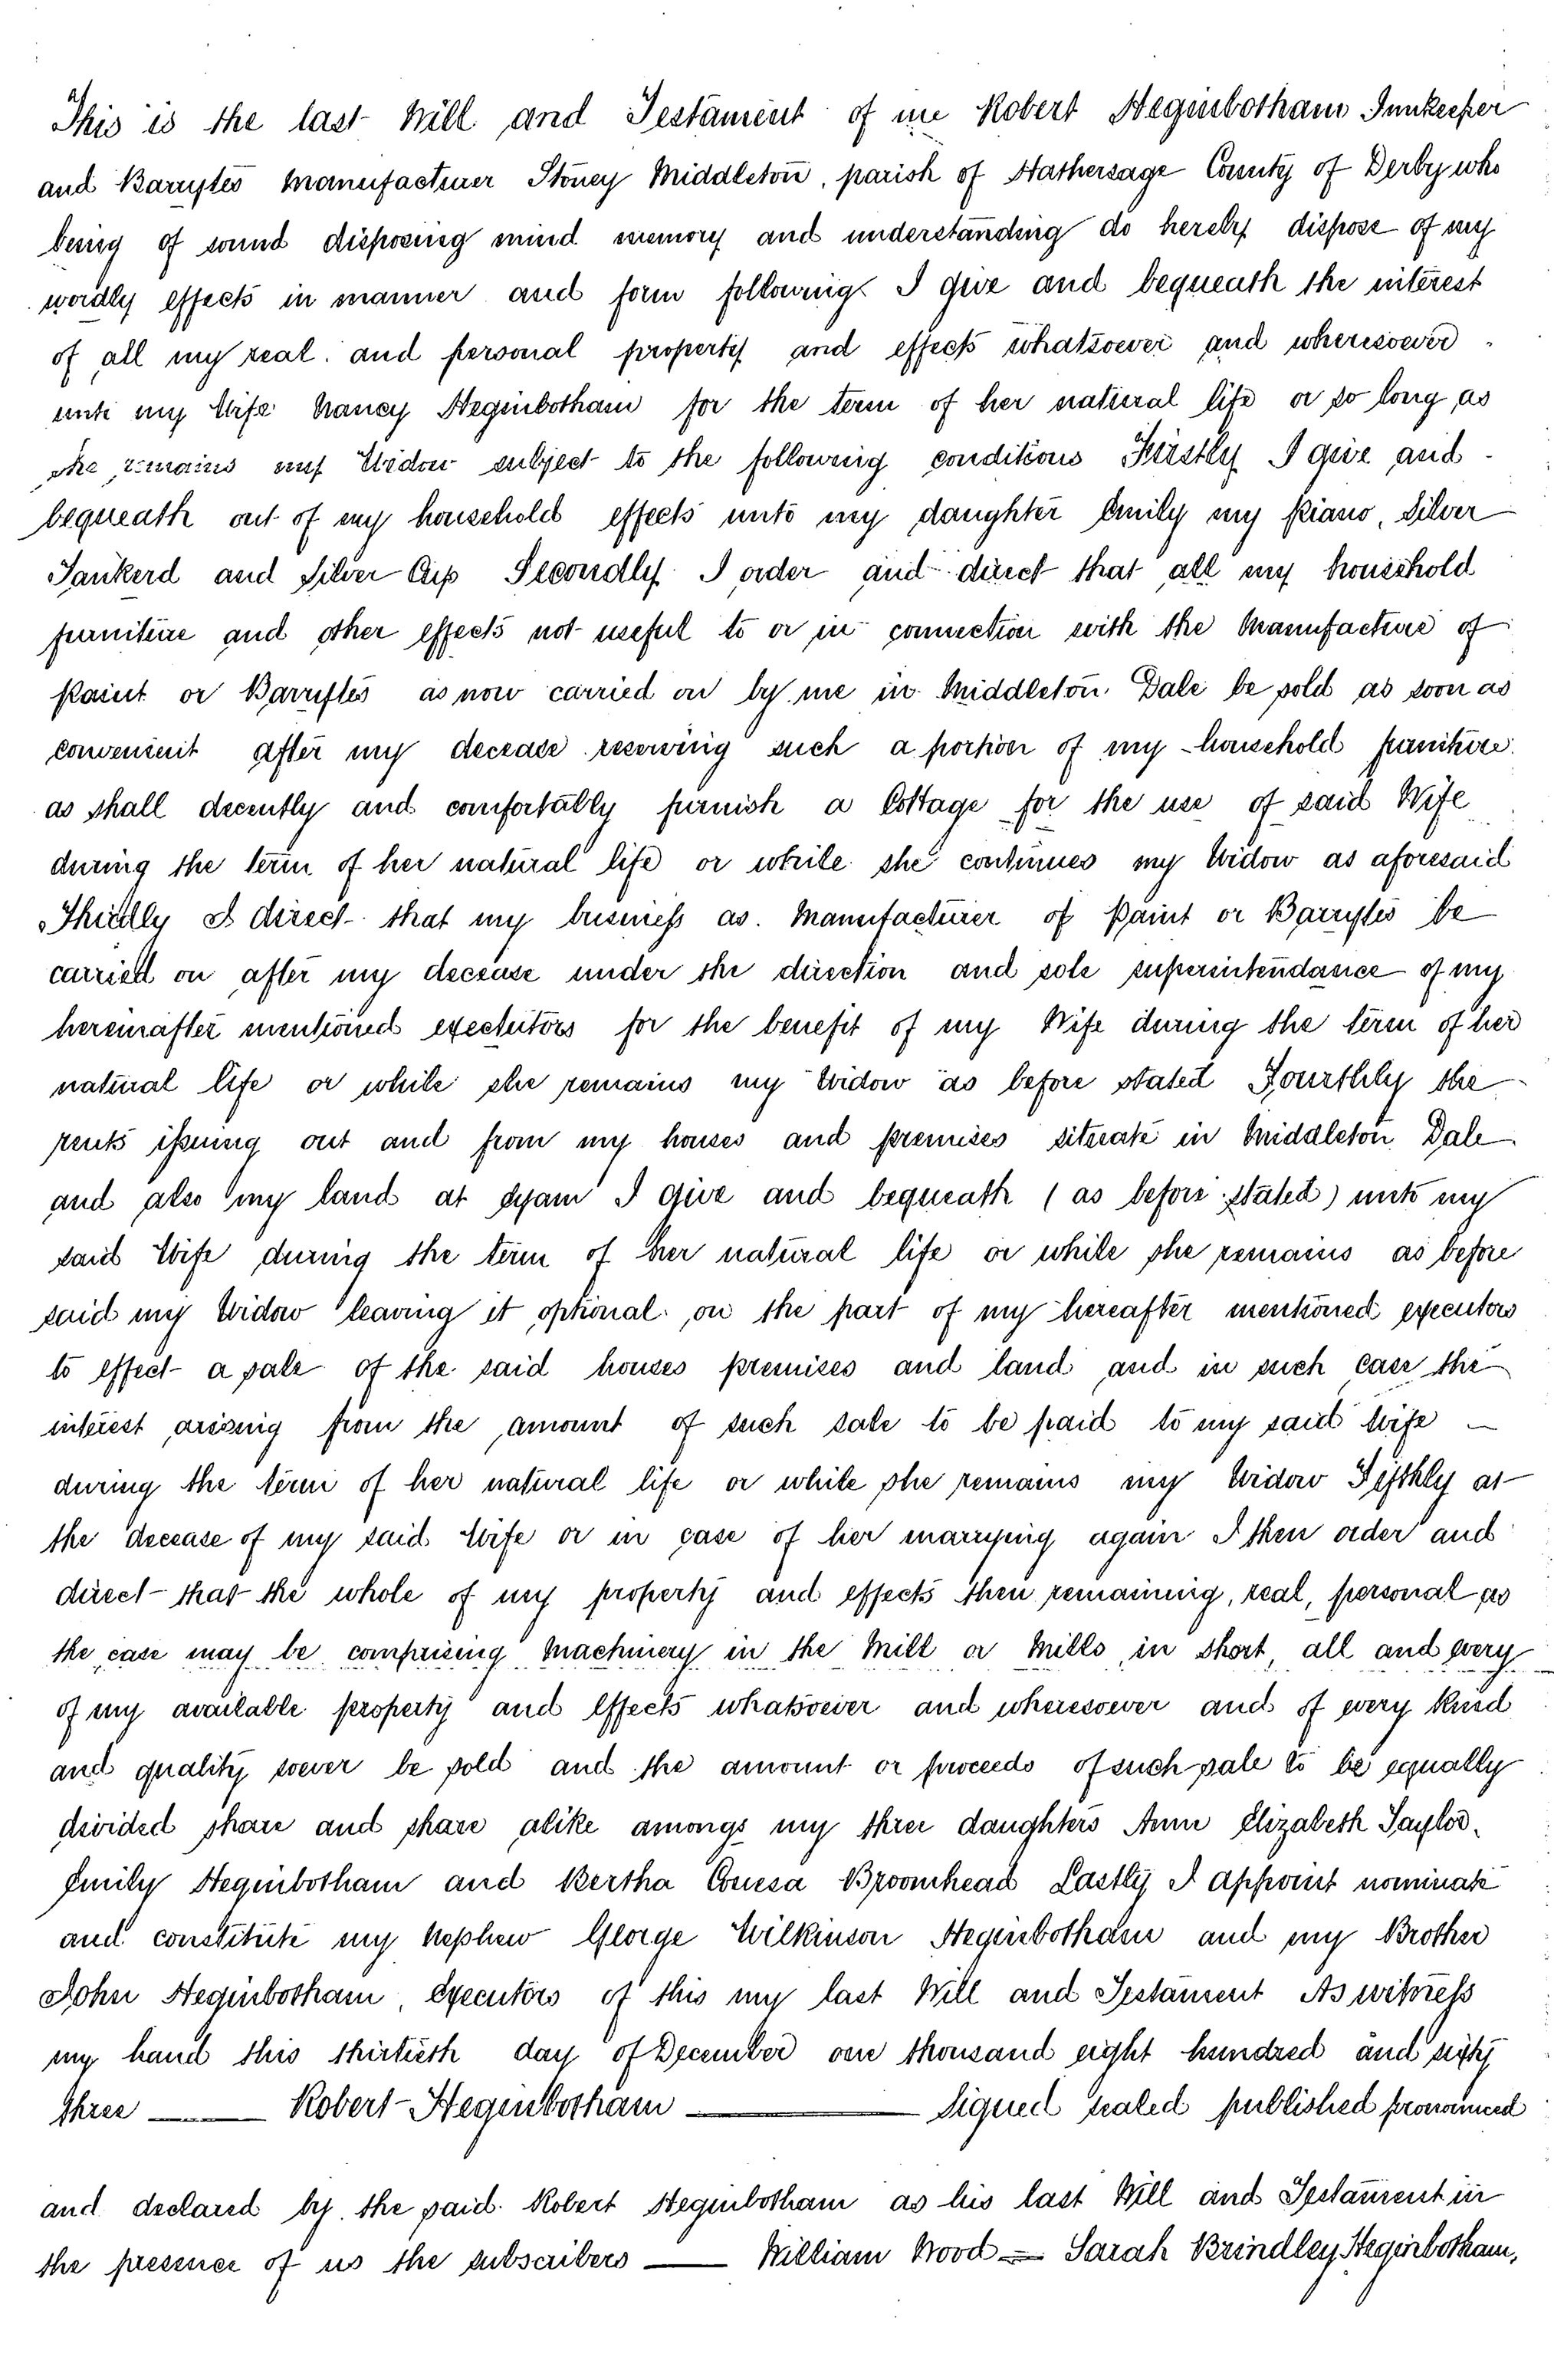 This is the last Will and Testament of me Robert Heginbotham Innkeeper
and Barrytes Manufacturer Stoney Middleton, parish of Hathersage County of Derby who
being of sound disposing mind memory and understanding do hereby dispose of my
wordly effects in manner and form following I give and bequeath the interest
of all my real and personal property and effects whatsoever and wheresoever
unto my Wife Nancy Heginbotham for the term of her natural life or so long as
she remains my Widow subject to the following conditions Firstly I give and
bequeath out of my household effects unto my daughter Emily my Piano, Silver
Tankerd and Silver Cup Secondly I order and direct that all my household
furniture and other effects not useful to or in connection with the Manufacture of
Paint or Barrytes as now carried on by me in Middleton Dale be sold as soon as
convenient after my decease reserving such a portion of my household furniture
as shall decently and comfortably furnish a Cottage for the use of said Wife
during the term of her natural life or while she continues my Widow as aforesaid
Thirdly I direct that my business as Manufacturer of Paint or Barrytes be
carried on after my decease under the direction and sole superintendance of my
hereinafter mentioned executors for the benefit of my Wife during the term of her
natural life or while she remains my Widow as before stated Fourthly the
rents issuing out and from my houses and premises situate in Middleton Dale
and also my land at Eyam I give and bequeath (as before stated) unto my
said Wife during the term of her natural life or while she remains as before
said my Widow leaving it optional on the part of my hereafter mentioned executors
to effect a sale of the said houses premises and land and in such case the
interest arising from the amount of such sale to be paid to my said Wife —
during the term of her natural life or while she remains my Widow Fifthly at
the decease of my said Wife or in case of her marrying again I then order and
direct that the whole of my property and effects then remaining, real, personal as
the case may be comprising Machinery in the Mill or Mills, in short, all and every
of my available property and Effects whatsoever and wheresoever and of every kind
and quality soever be sold and the amount or proceeds of such sale to be equally
divided share and share alike amongs my three daughters Ann Elizabeth Taylor,
Emily Heginbotham and Bertha Conesa Broomhead Lastly I appoint nominate
and constitute my Nephew George Wilkinson Heginbotham and my Brother
John Heginbotham, Executors of this my last Will and Testament As witness
my hand this thirtieth day of December one thousand eight hundred and sixty
three — Robert Heginbotham — Signed sealed published pronounced
and declared by the said Robert Heginbotham as his last Will and Testament in
the presence of us the subscribers — William Wood — Sarah Brindley Heginbotham,